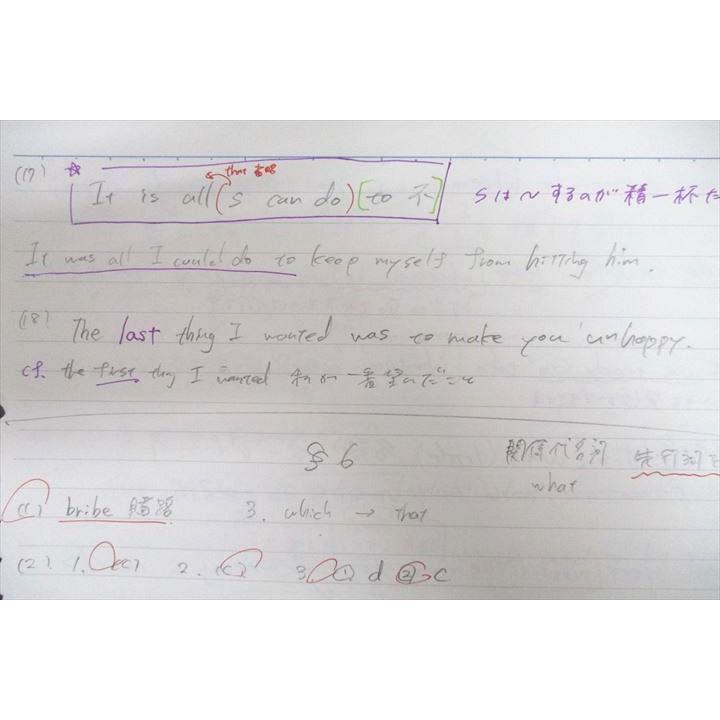 (17) ☆ that 省略
It is all (S can do) [to 不] Sは〜するのが精一杯だ
It was all I could do to keep myself from hitting him.
(18) The last thing I wanted was to make you unhappy.
cf. the first thing I wanted 私が一番望んだこと
§6 関係代名詞 先行詞
what
(1) bribe 賄賂 3. which → that
(2). 1. (c) 2. (c) 3. ① d ② c